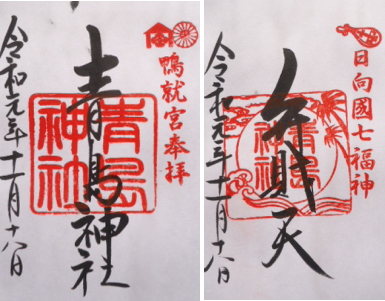 鴨就宮奉拝
青島神社
青島
神社
令和元年十一月十八日
日向國七福神
弁財天
青島
神社
令和元年十一月十八日